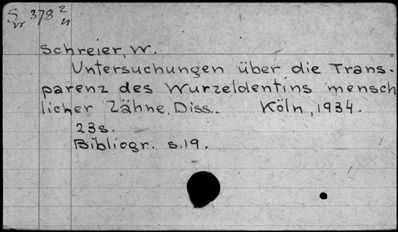 S 378 2
vr n
Schreier, W.
Untersuchungen über die Trans-
parenz des Wurzeldentins mensch
licher Zähne, Diss.. Köln, 1934.
23s.
Bibliogr. s.19.